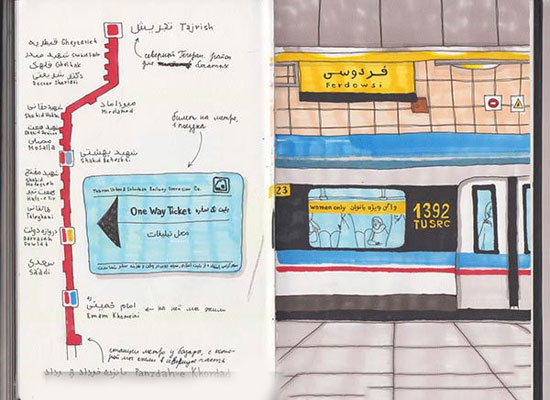 تجریش Tajrish
قیطریه Gheytarieh
شهید صدر
قلهک Gholhak
دکتر شریعتی
Doctor Shariati
северный Тегеран, район
для богатых
میرداماد
Mirdamad
شهید حقانی
شهید همت
مصلی
Mosalla
شهید بهشتی
Shahid Beheshti
شهید مفتح
هفت تیر
طالقانی
Taleghani
دروازه دولت
Darvazeh
Dowlat
سعدی
Sa'adi
امام خمینی
Emam Khomeini
← на ней мы жили
билет на метро,
1 поездка
Tehran Urban & Suburban Railway Operation Co.
One Way Ticket بلیت تک سفره
محل تبلیغات
станция метро у базара, с
پانزده خرداد Panzdah-e Khordad
فردوسی
Ferdowsi
23
woman only واگن ویژه بانوان
1392
TUSRC